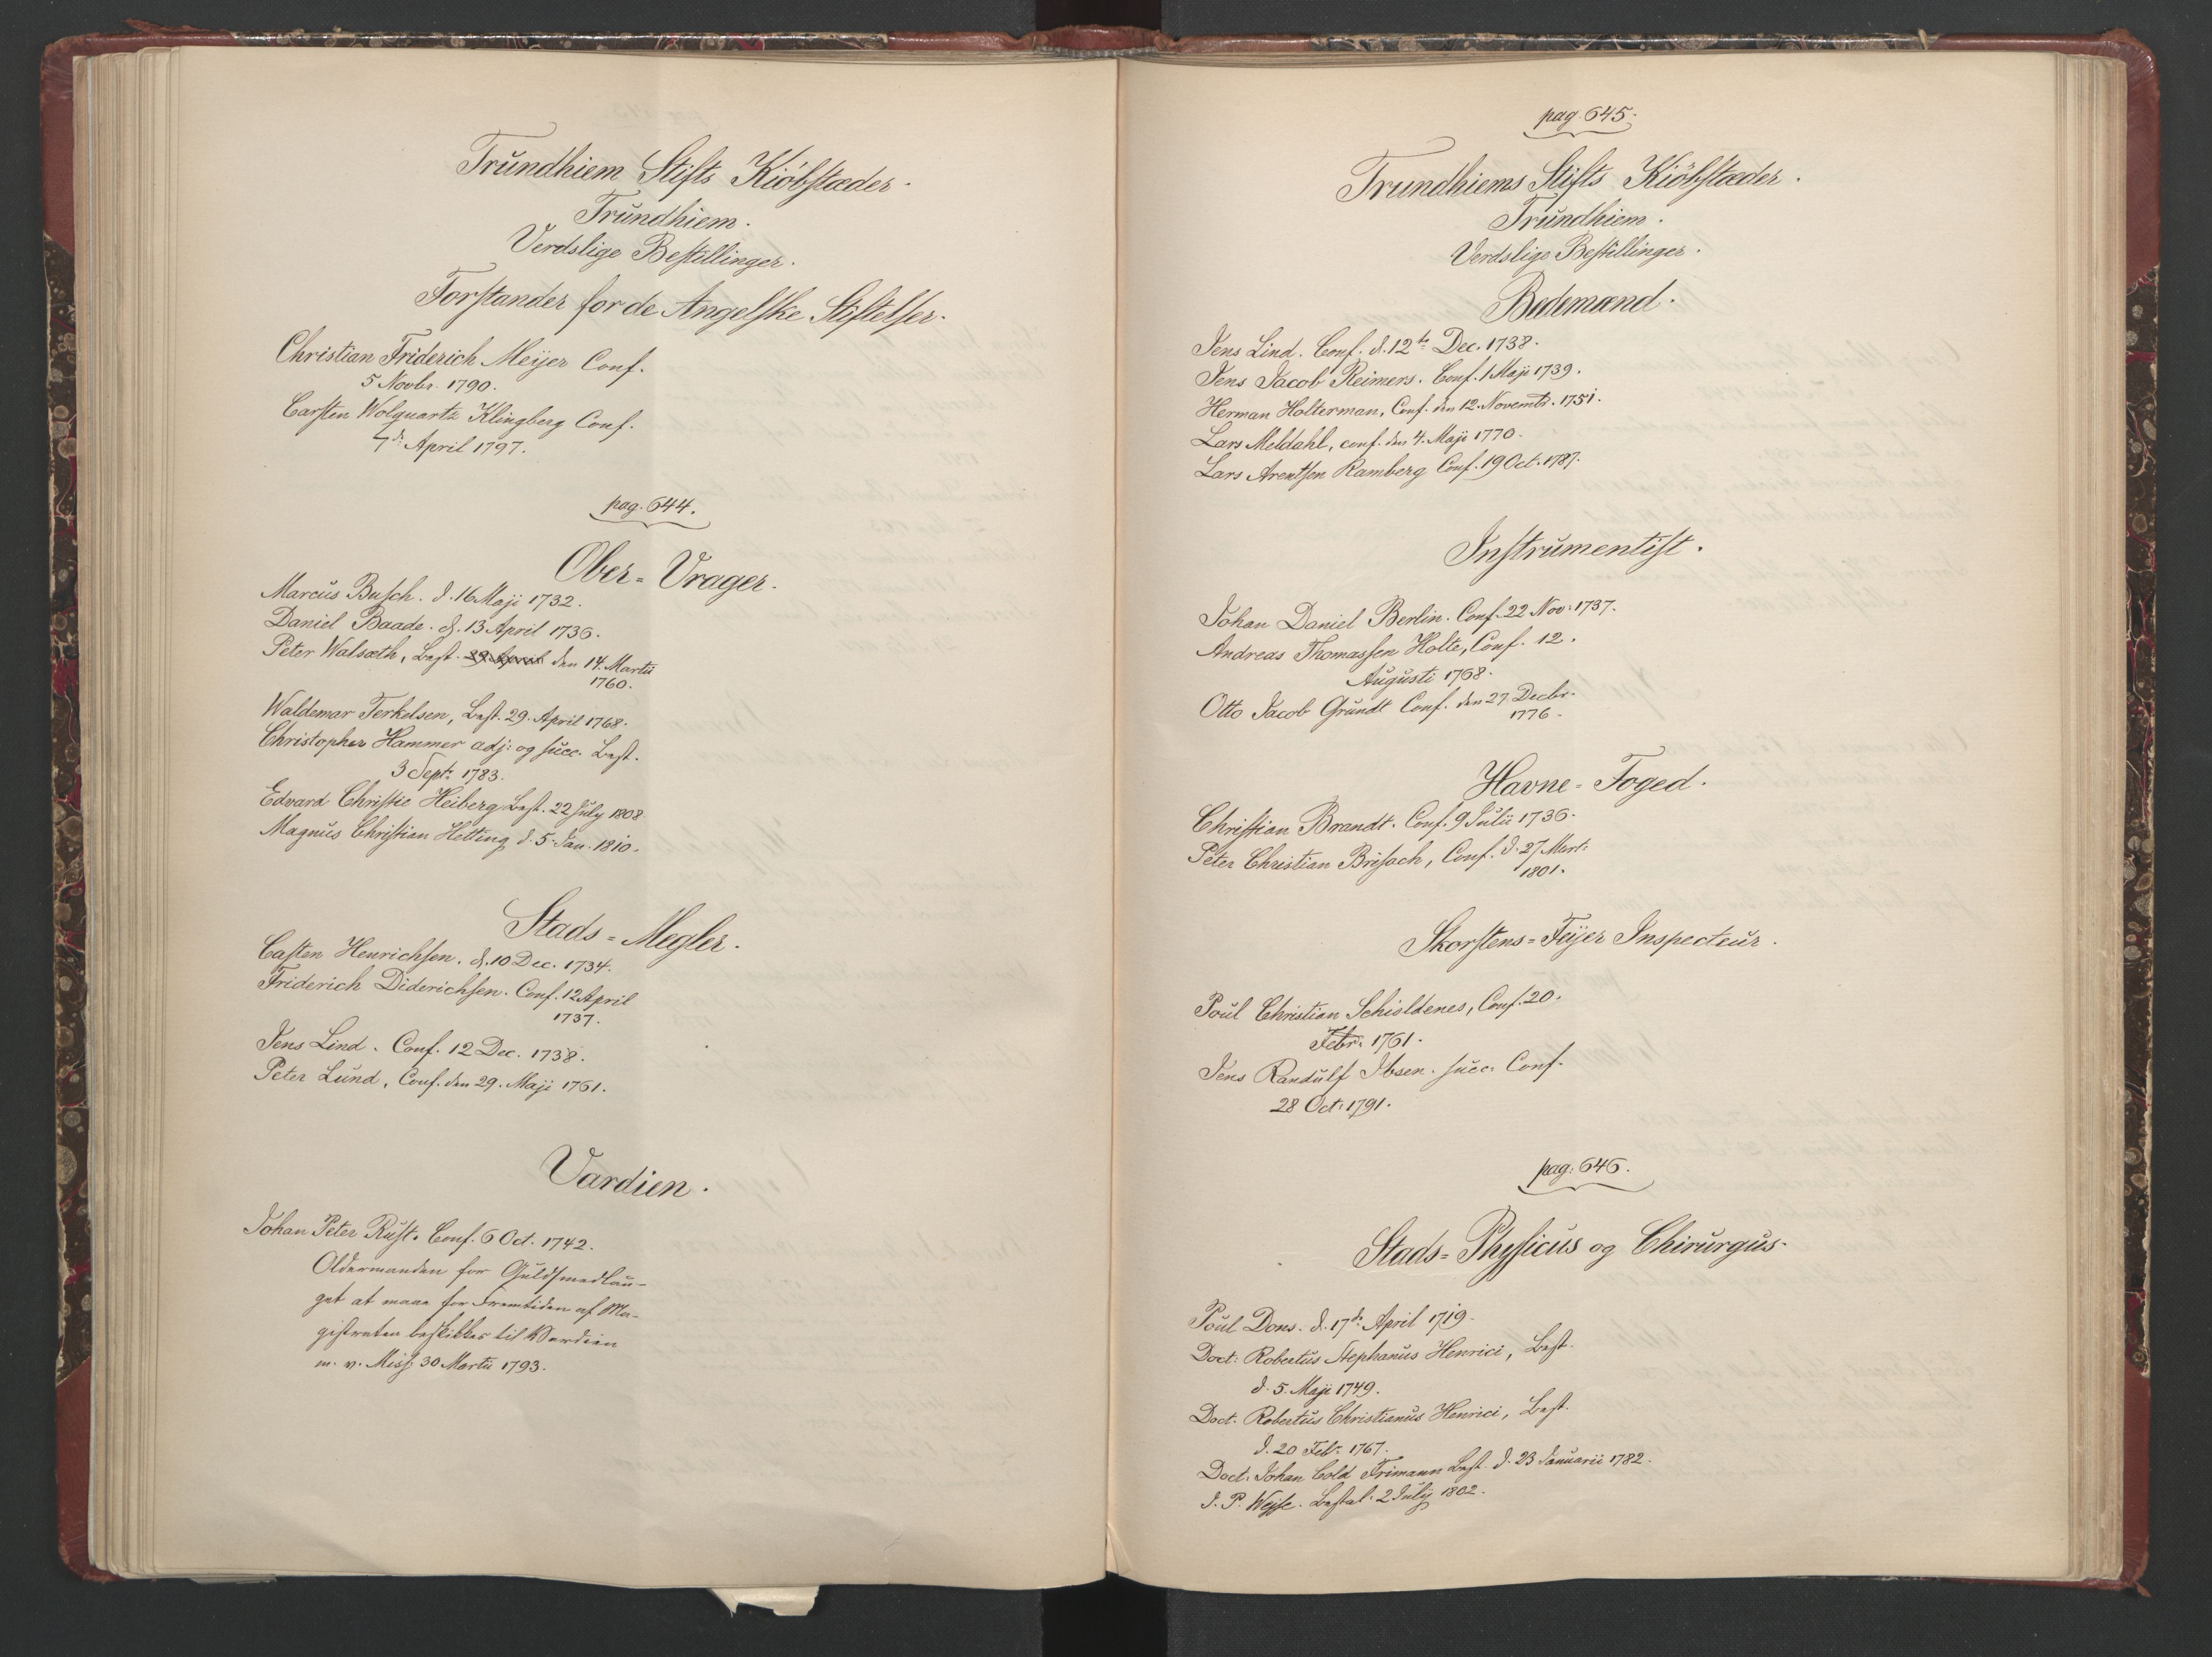 Trundhiem Stifts Kiöbstæder.
Trundhiem.
Verdslige Bestillinger.
Forstander for de Angelske Stiftelser.
Christian Friderich Meijer Conf.
5 Novbr. 1790.
Carsten Wolquartz Klingberg Conf.
7de April 1797.
pag. 644.
Ober-Vrager.
Marcus Busch. d. 16 Maji 1732.
Daniel Baade. d. 13 April 1736.
Peter Walsæth, Best. 29. April den 14. Martii
1760.
Waldemar Terkelsen, Best. 29. April 1768.
Christopher Hammer adj: og succ. Best.
3 Septr 1783.
Edvard Christie Heiberg Best. 22 July 1808
Magnus Christian Hetting d. 5 Jan. 1810.
Stads-Megler.
Casten Henrichsen. d. 10 Dec. 1734.
Friderich Diderichsen. Conf. 12 April
1737.
Jens Lind. Conf. 12 Dec. 1738.
Peter Lund, Conf. den 29. Maji 1761.
Vardien.
Johan Peter Rust. Conf. 6 Oct. 1742.
Oldermanden for Guldsmedlau-
get at maae for Fremtiden af Ma-
gistraten beskikkes til Wardien
m. v. Miss. 30 Martii 1793.
pag. 645.
Trundhiems Stifts Kiöbstæder.
Trundhiem.
Verdslige Bestillinger.
Bedemænd.
Jens Lind. Conf. d. 12te Dec. 1738.
Jens Jacob Reimers. Conf. 1 Maji 1739.
Herman Holterman, Conf. den 12. Novembr. 1751.
Lars Meldahl, conf. den 4. Maji 1770.
Lars Arentsen Ramberg Conf. 19 Oct. 1787.
Instrumentist.
Johan Daniel Berlin. Conf. 22 Nov: 1737.
Andreas Thomassen Holte, Conf. 12.
Augusti 1768.
Otto Jacob Grundt Conf. den 27 Decbr.
1776.
Havne-Foged.
Christian Brandt. Conf. 9 Julii 1736.
Peter Christian Brisach, Conf. d. 27 Mart:
1801.
Skorstens-Feijer Inspecteur.
Poul Christian Schioldenes, Conf. 20.
Febr. 1761.
Jens Randulf Ibsen. succ. Conf.
28 Oct. 1791.
pag: 646.
Stads-Physicus og Chirurgus.
Poul Dons. d. 17de April 1719.
Doct: Robertus Stephanus Henrici, Best.
d. 5. Maji 1749.
Doct. Robertus Christianus Henrici, Best.
d. 20 Feb. 1767.
Doct: Johan Cold Frimann Best. d. 23 Januarii 1782.
J. P. Wejse. Bestal. 2 Julij 1802.